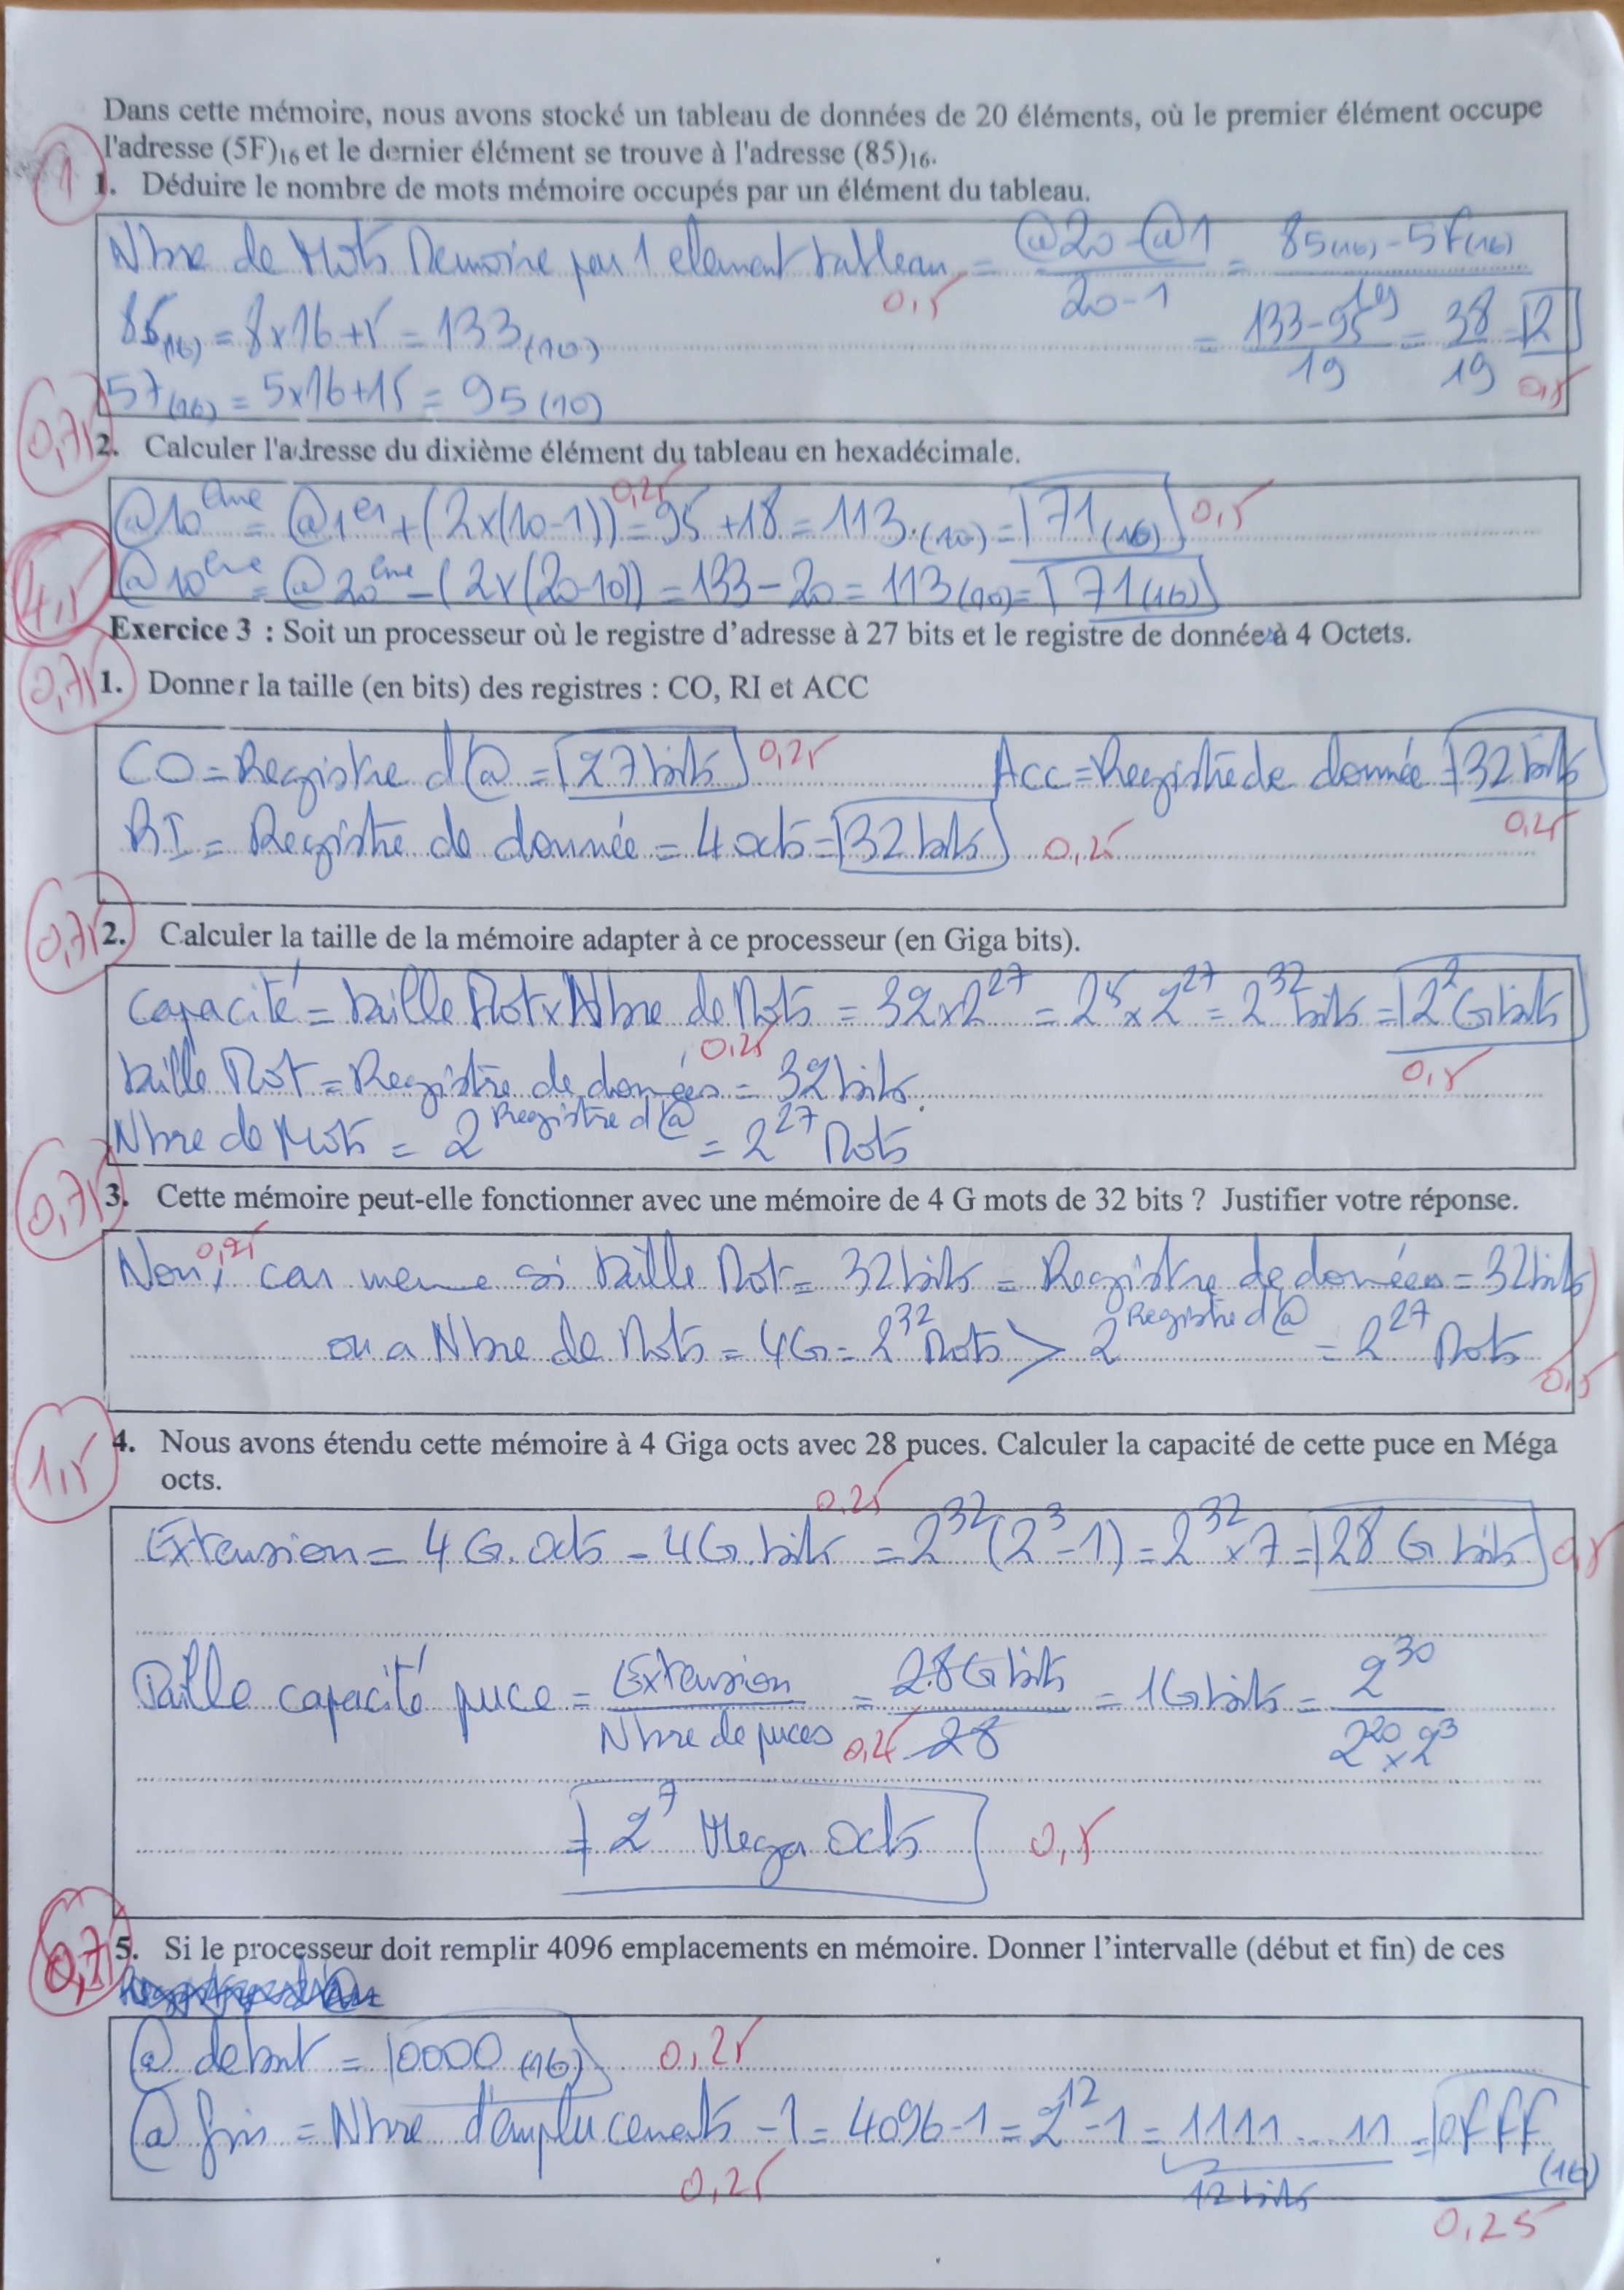 Dans cette mémoire, nous avons stocké un tableau de données de 20 éléments, où le premier élément occupe
l'adresse (5F)16 et le dernier élément se trouve à l'adresse (85)16.
1
1. Déduire le nombre de mots mémoire occupés par un élément du tableau.
Nbre de Mots Memoire par 1 element tableau = (@20 - @1)/(20-1) = (85(16) - 5F(16))/19
0,5
85(16) = 8x16+5 = 133(10) = (133-95)/19 = 38/19 = 2
5F(16) = 5x16+15 = 95(10) 0,5
0,75
2. Calculer l'adresse du dixième élément du tableau en hexadécimale.
@10ème = @1er + (2x(10-1)) = 95+18 = 113(10) = 71(16) 0,25 0,5
@10ème = @20ème - (2x(20-10)) = 133-20 = 113(10) = 71(16)
4,5
Exercice 3 : Soit un processeur où le registre d'adresse à 27 bits et le registre de donnée à 4 Octets.
0,75
1. Donner la taille (en bits) des registres : CO, RI et ACC
CO = Registre d'@ = 27 bits 0,25 Acc = Registre de donnée = 32 bits 0,25
RI = Registre de donnée = 4 octs = 32 bits 0,25
0,75
2. Calculer la taille de la mémoire adapter à ce processeur (en Giga bits).
Capacité = taille Mot x Nbre de Mots = 32x2^27 = 2^5 x 2^27 = 2^32 bits = 2^2 Gbits
0,25 0,5
taille Mot = Registre de données = 32 bits
Nbre de Mots = 2^Registre d'@ = 2^27 Mots
0,75
3. Cette mémoire peut-elle fonctionner avec une mémoire de 4 G mots de 32 bits ? Justifier votre réponse.
0,25
Non, car meme si taille Mot = 32 bits = Registre de données = 32 bits
on a Nbre de Mots = 4G = 2^32 Mots > 2^Registre d'@ = 2^27 Mots
0,5
1,5
4. Nous avons étendu cette mémoire à 4 Giga octs avec 28 puces. Calculer la capacité de cette puce en Méga
octs.
0,25
Extension = 4 G.octs - 4G.bits = 2^32 (2^3 - 1) = 2^32 x 7 = 28 G bits 0,5
Taille capacité puce = Extension/Nbre de puces = 28 G bits/28 = 1Gbits = 2^30/(2^20 x 2^3)
0,25
= 2^7 Mega octs 0,5
0,75
5. Si le processeur doit remplir 4096 emplacements en mémoire. Donner l'intervalle (début et fin) de ces
@ debut = 0000(16) 0,25
@ fin = Nbre d'emplacements - 1 = 4096-1 = 2^12-1 = 1111...11 = 0FFF(16)
12 bits
0,25 0,25